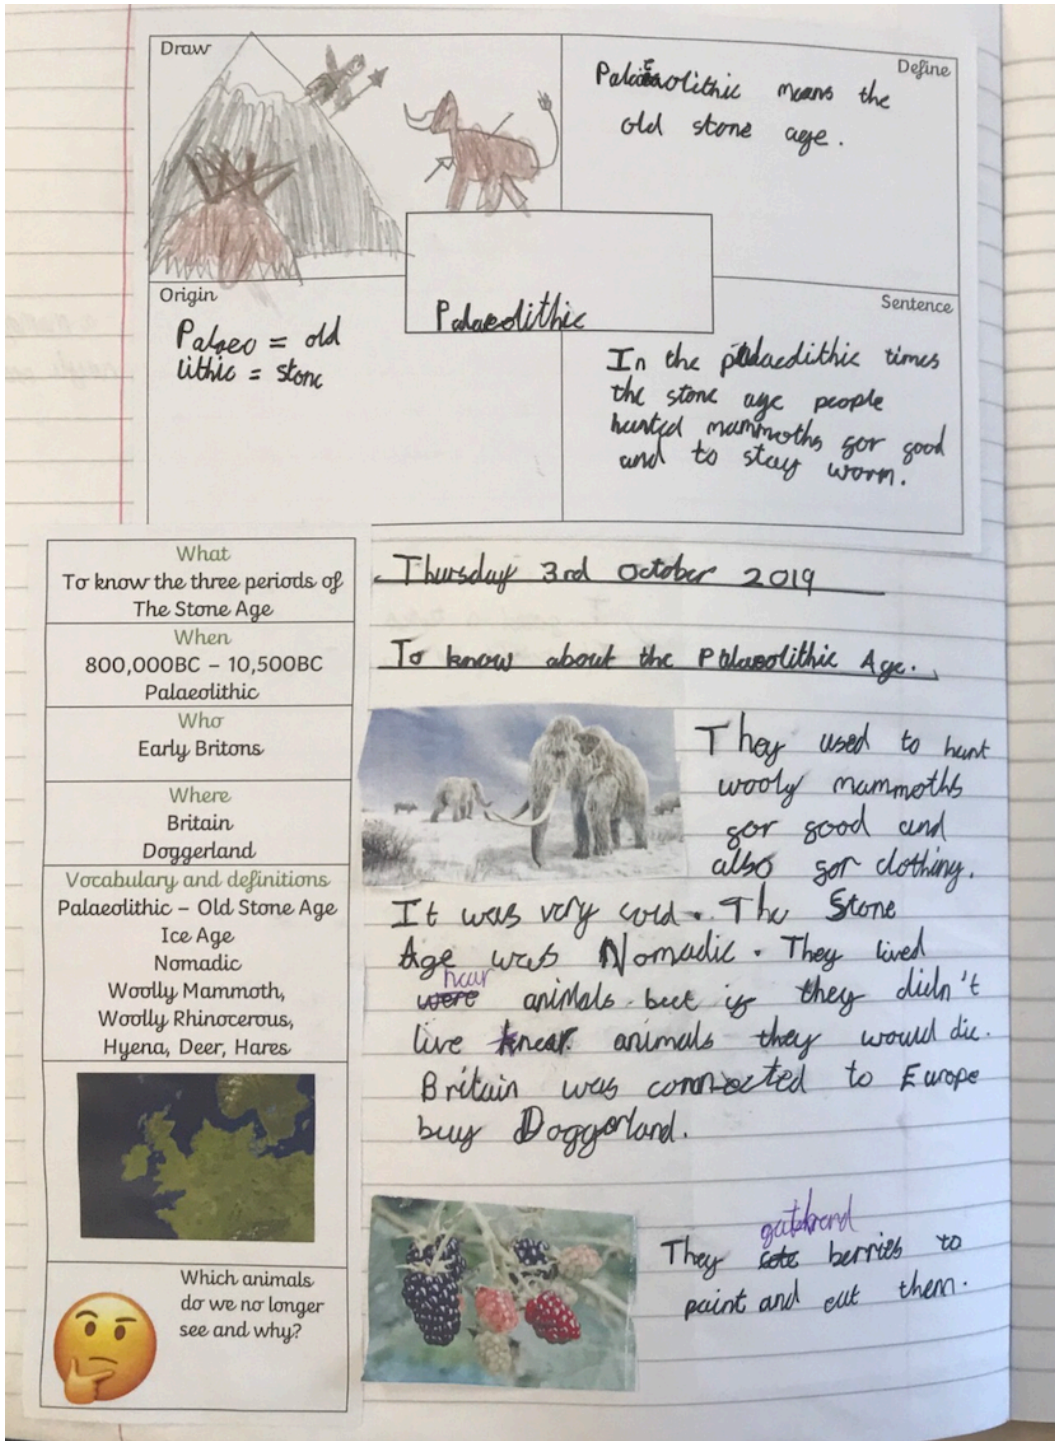 Draw
Define
Palaeolithic means the
old stone age.
Palaeolithic
Origin
Palaeo = old
lithic = stone
Sentence
In the palaeolithic times
the stone age people
hunted mammoths for food
and to stay worm.
What
To know the three periods of
The Stone Age
When
800,000BC – 10,500BC
Palaeolithic
Who
Early Britons
Where
Britain
Doggerland
Vocabulary and definitions
Palaeolithic – Old Stone Age
Ice Age
Nomadic
Woolly Mammoth,
Woolly Rhinocerous,
Hyena, Deer, Hares
Which animals
do we no longer
see and why?
Thursday 3rd October 2019
To know about the Palaeolithic Age.
They used to hunt
wooly mammoths
for food and
also for clothing.
It was very cold. The Stone
Age was Nomadic. They lived
near
were animals but if they didn't
live knear animals they would die.
Britain was connected to Europe
buy Doggerland.
They berries to
paint and eat them.